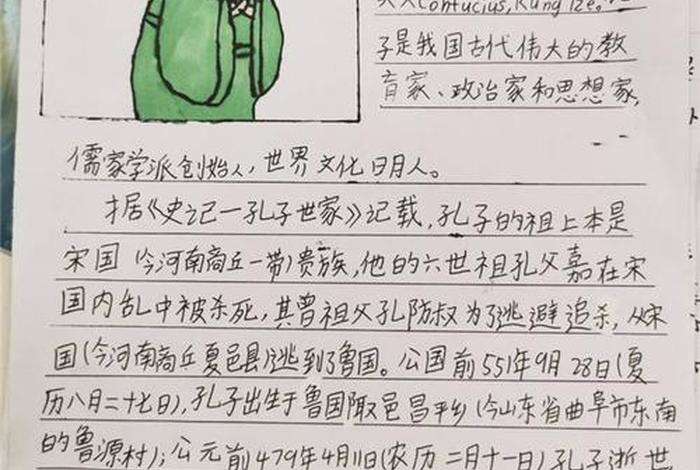 Confucius, Kung Tze。
子是我国古代伟大的教
育家、政治家和思想家,
儒家学派创始人,世界文化日月人。
据《史记一孔子世家》记载,孔子的祖上本是
宋国(今河南商丘一带)贵族,他的六世祖孔父嘉在宋
国内乱中被杀死,其曾祖父孔防叔为了逃避追杀,从宋
国(今河南商丘夏邑县)逃到了鲁国。公国前551年9月28日(夏
历八月二十七日),孔子出生于鲁国陬邑昌平乡(今山东省曲阜市东南
的鲁源村);公元前479年4月11日(农历二月十一日)孔子逝世